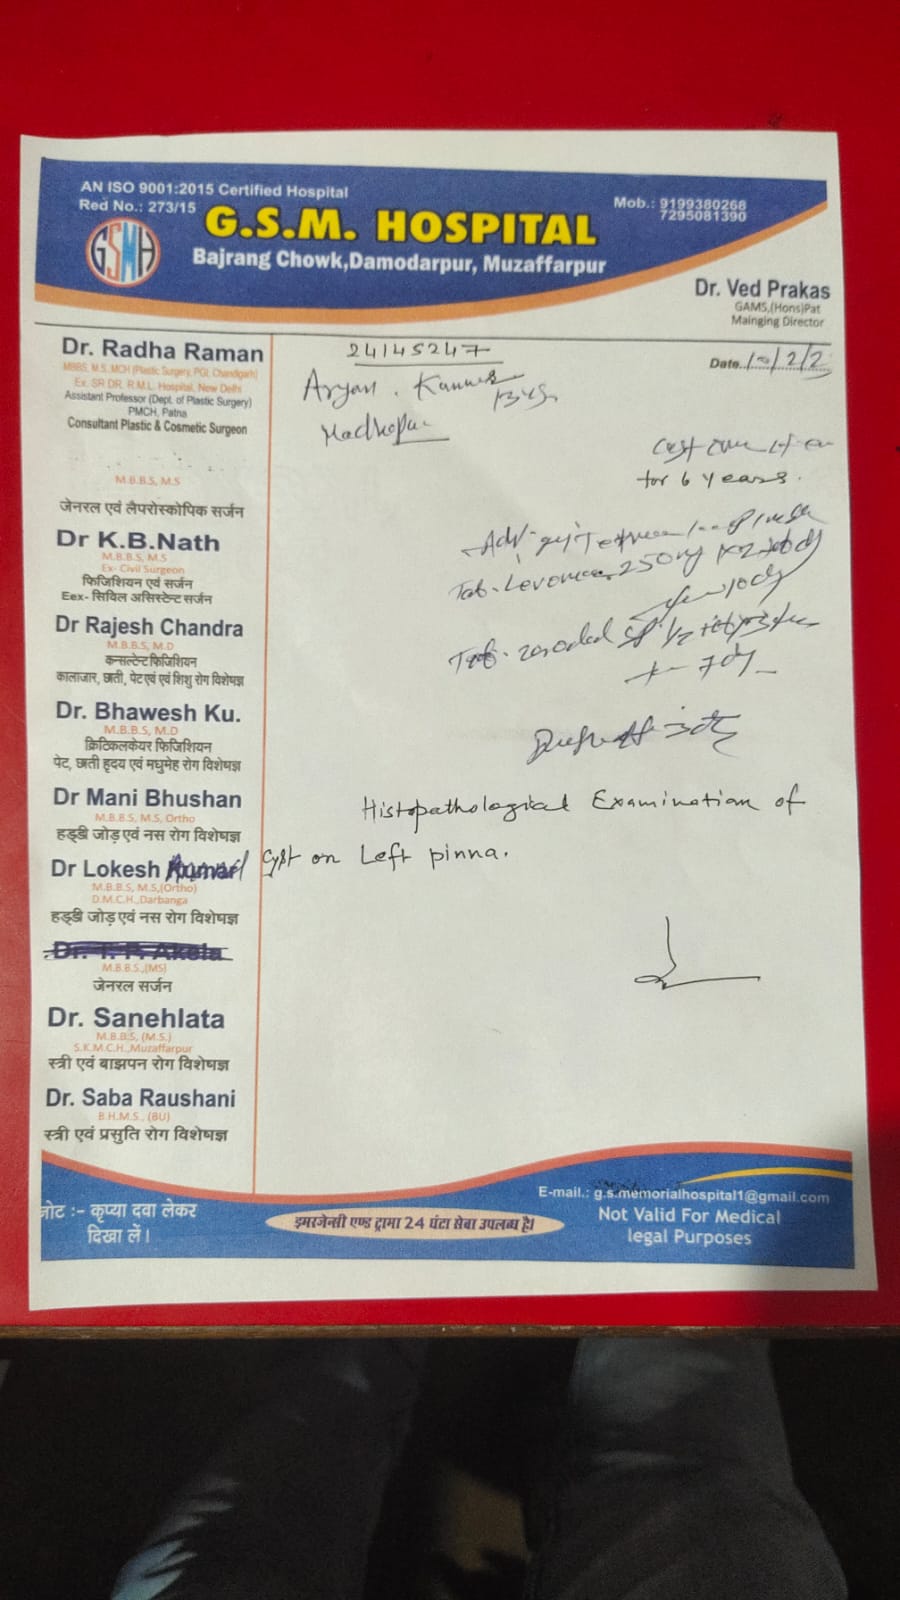 AN ISO 9001:2015 Certified Hospital
Red No.: 273/15
Mob.: 9199380268
7295081390
GSMH
G.S.M. HOSPITAL
Bajrang Chowk,Damodarpur, Muzaffarpur
Dr. Ved Prakas
GAMS,(Hons)Pat
Mainging Director
24145247
Date.
Aryan
Madhopur
Dr. Radha Raman
MBBS, M.S, MCH (Plastic Surgery, PGI, Chandigarh)
Ex. SR DR. R.M.L. Hospital, New Delhi
Assistant Professor (Dept. of Plastic Surgery)
PMCH, Patna
Consultant Plastic & Cosmetic Surgeon
M.B.B.S, M.S
जेनरल एवं लैपरोस्कोपिक सर्जन
Dr K.B.Nath
M.B.B.S, M.S
Ex- Civil Surgeon
फिजिशियन एवं सर्जन
Eex- सिविल असिस्टेन्ट सर्जन
Dr Rajesh Chandra
M.B.B.S, M.D
कन्सल्टेन्ट फिजिशियन
कालाजार, छाती, पेट एवं एवं शिशु रोग विशेषज्ञ
Dr. Bhawesh Ku.
M.B.B.S, M.D
क्रिटिकलकेयर फिजिशियन
पेट, छाती हृदय एवं मधुमेह रोग विशेषज्ञ
Dr Mani Bhushan
M.B.B.S, M.S, Ortho
हड्डी जोड़ एवं नस रोग विशेषज्ञ
Dr Lokesh
M.B.B.S, M.S,(Ortho)
D.M.C.H.,Darbanga
हड्डी जोड़ एवं नस रोग विशेषज्ञ
Dr. T. P. Akela
M.B.B.S.,(MS)
जेनरल सर्जन
Dr. Sanehlata
M.B.B.S, (M.S.)
S.K.M.C.H.,Muzaffarpur
स्त्री एवं बाझपन रोग विशेषज्ञ
Dr. Saba Raushani
B.H.M.S., (BU)
स्त्री एवं प्रसुति रोग विशेषज्ञ
for 6 years.
Tab. 250mg
Tab.
Histopathological Examination of
Cyst on Left pinna.
नोट :- कृप्या दवा लेकर
दिखा लें।
इमरजेन्सी एण्ड ट्रामा 24 घंटा सेवा उपलब्ध है।
E-mail.: g.s.memorialhospital1@gmail.com
Not Valid For Medical
legal Purposes